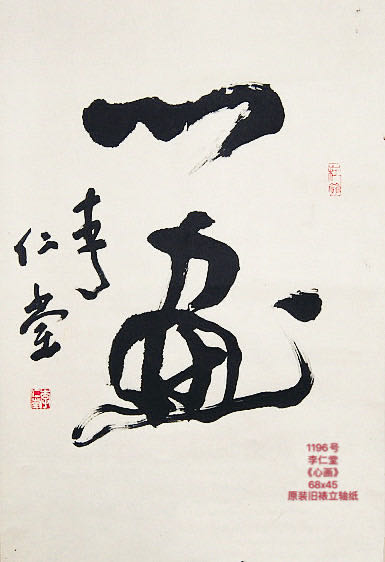 心畫
仁堂
1196号
李仁堂
《心画》
68x45
原装旧裱立轴纸